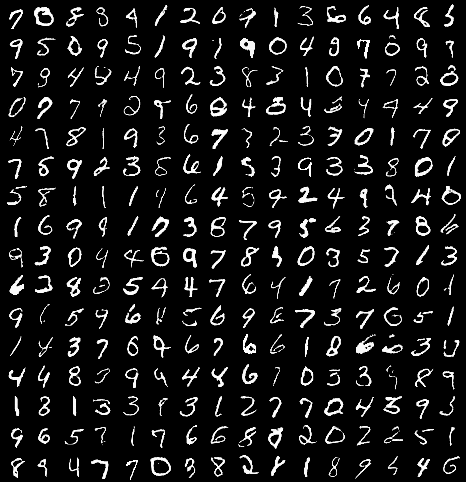 7 8 8 8 4 1 2 0 9 1 3 6 6 4 8 3
9 5 0 9 5 1 9 1 9 0 4 9 7 8 9 7
7 9 4 4 9 2 3 8 3 1 0 7 7 2 8
0 9 7 9 2 9 6 0 4 8 4 6 4 4 4 9
4 7 8 1 9 3 6 7 3 2 3 7 0 1 7 0
7 6 9 2 3 8 6 1 5 3 9 3 3 8 0 1
5 8 1 1 1 4 6 4 8 9 2 4 9 2 4 0
1 6 9 9 1 7 3 8 7 9 5 6 3 7 8 6
9 3 0 4 4 6 9 7 8 3 0 3 5 7 1 3
6 3 8 2 5 4 4 7 6 4 1 7 2 6 0 1
9 6 5 9 6 4 5 6 9 8 7 3 7 6 5 1
1 4 3 7 6 4 6 7 6 6 1 8 6 6 3 0
4 4 8 3 9 4 4 4 6 7 0 3 3 9 8 9
1 3 1 3 3 9 3 1 2 7 7 0 4 3 9 3
9 6 5 7 1 7 6 6 8 8 2 0 2 2 5 1
8 9 4 7 7 0 3 8 2 8 1 8 9 5 4 6